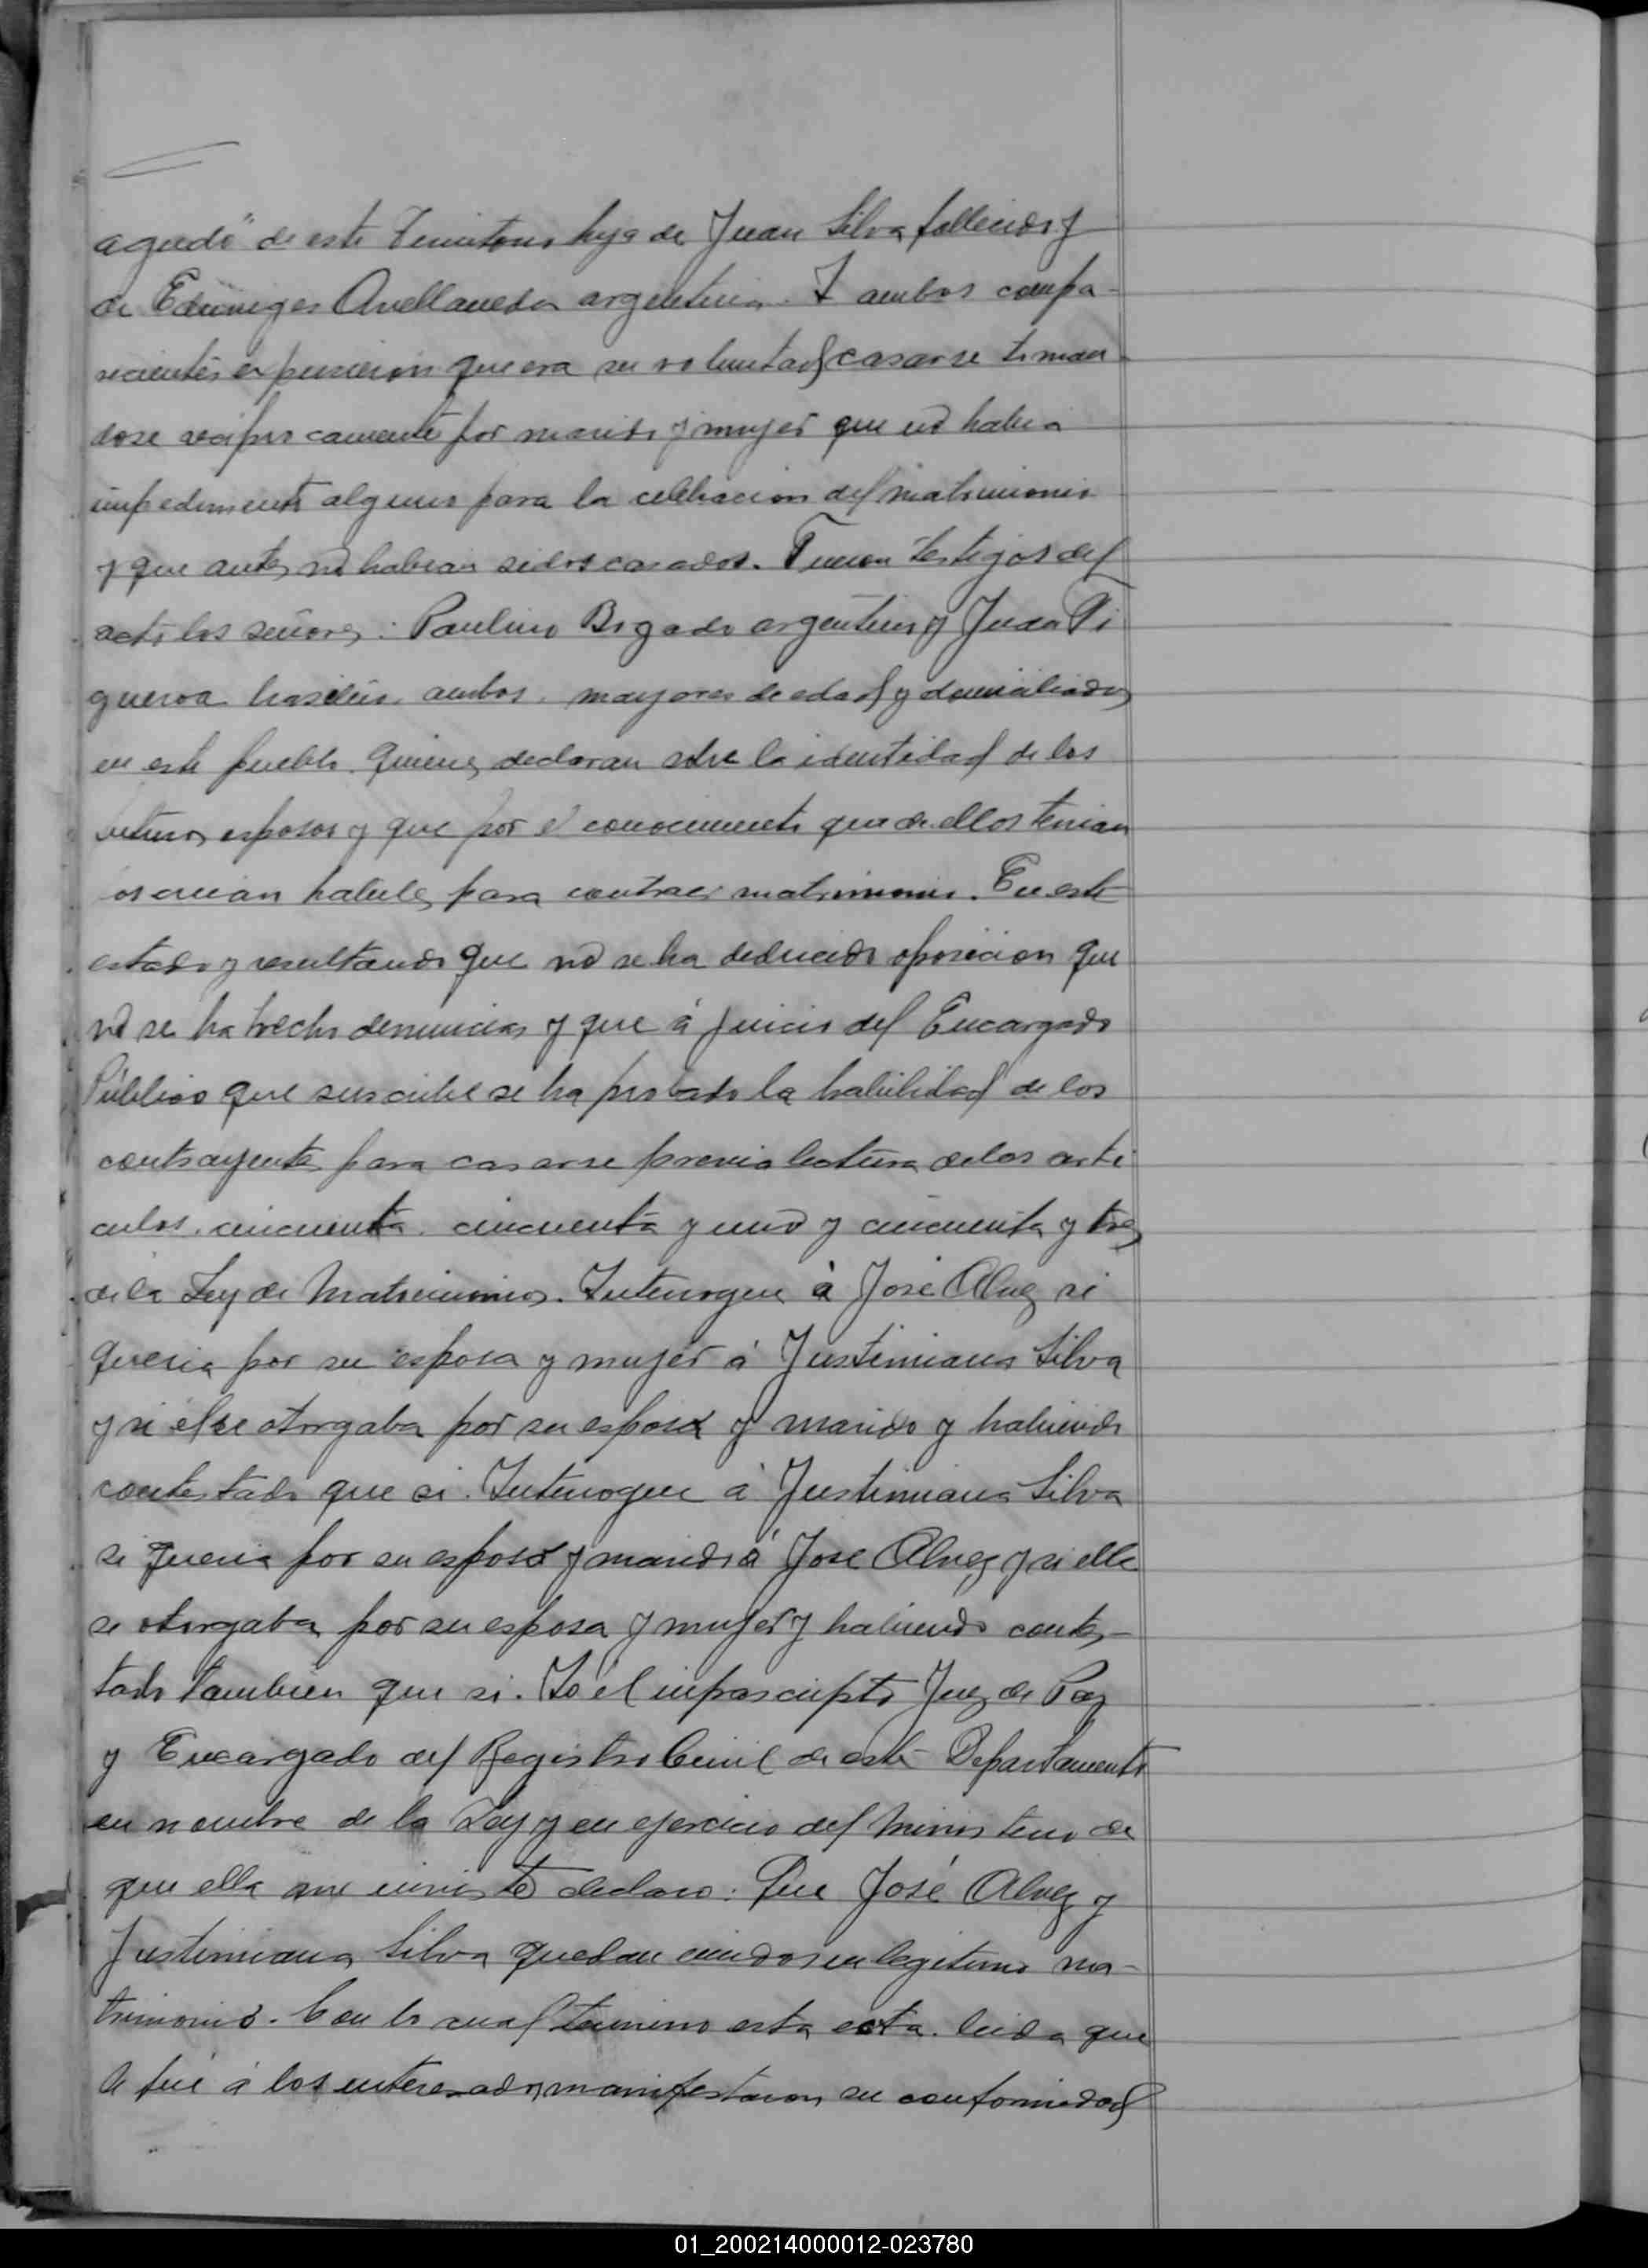 aguedo" de este Territorio hija de Juan Silva fallecido y
de Eduviges Avellaneda argentina. I ambos compa-
recientes expusieron que era su voluntad casarse toman
dose reciprocamente por marido y mujer que no habia
impedimento alguno para la celebracion del matrimonio
y que antes no habian sidos casados. Fueron testigos del
acto los señores: Paulino Bogado argentino y Juan Fi
gueroa brasilero, ambos, mayores de edad y domiciliados
en este pueblo. quienes declaran sobre la identidad de los
futuros esposos y que por el conocimiento que de ellos tenian
los creian habiles para contraer matrimonio. En este
estado y resultando que no se ha deducido oposicion que
no se ha hecho denuncias y que á juicio del Encargado
Público que suscribe se ha probado la habilidad de los
contrayentes para casarse previa lectura de los arti
culos, cincuenta, cincuenta y uno y cincuenta y tres
de la Ley de Matrimonios. Interrogue à José Alvez si
queria por su esposa y mujer á Justiniana Silva
y si él se otorgaba por su esposo y marido y habiendo
contestado que si. Interrogue á Justiniana Silva
si queria por su esposo y marido á José Alvez y si ella
se otorgaba por su esposa y mujer y habiendo contes-
tado tambien que si. Yo él infrascripto Juez de Paz
y Encargado del Registro Civil de este Departamento
en nombre de la Ley y en ejercicio del Ministerio de
que ella me inviste declaro: Que José Alvez y
Justiniana Silva quedan unidos en legitimo ma-
trimonio. Con lo cual termino esta acta. leida que
le fué á los interesados, manifestaron su conformidad
01_200214000012-023780